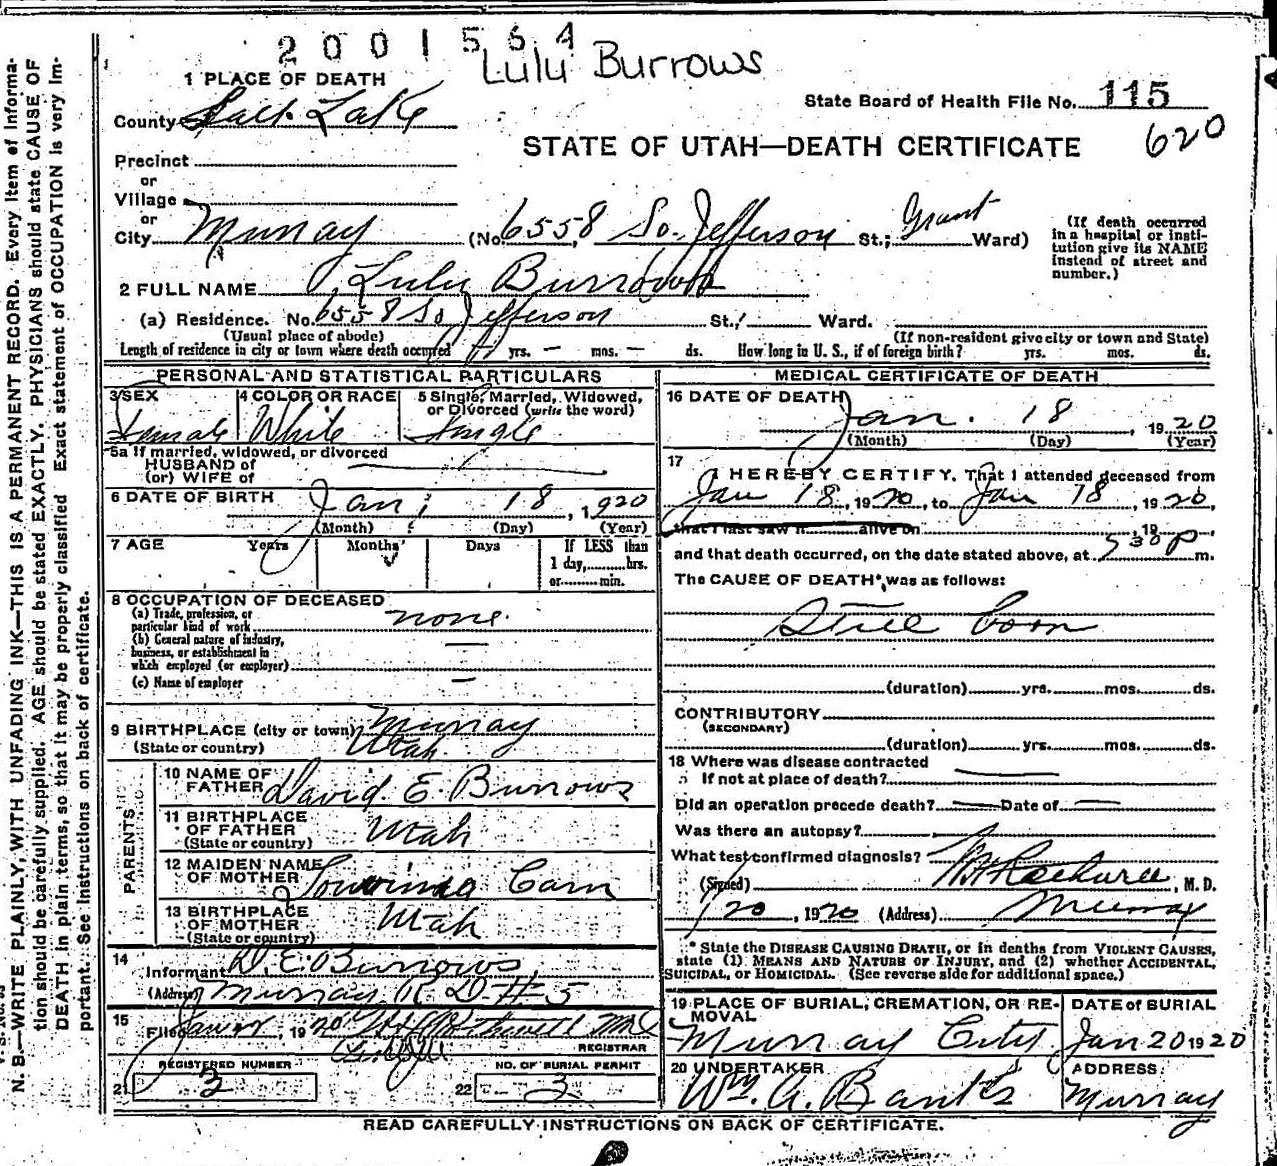 2001564
Lulu Burrows
1 PLACE OF DEATH
State Board of Health File No. 115
County Salt Lake
620
STATE OF UTAH—DEATH CERTIFICATE
Precinct
or
Village
or
City Murray (No. 6558, So. Jefferson St.; Grant Ward)
(If death occurred in a hospital or institution give its NAME instead of street and number.)
2 FULL NAME Lulu Burrows
(a) Residence. No. 6558 So Jefferson St., Ward.
(Usual place of abode) (If non-resident give city or town and State)
Length of residence in city or town where death occurred yrs. — mos. — ds. How long in U. S., if of foreign birth? yrs. mos. ds.
PERSONAL AND STATISTICAL PARTICULARS
3 SEX Female
4 COLOR OR RACE White
5 Single, Married, Widowed, or Divorced (write the word) Single
5a If married, widowed, or divorced
HUSBAND of
(or) WIFE of
6 DATE OF BIRTH Jan. 18, 1920
(Month) (Day) (Year)
7 AGE Years Months Days If LESS than
1 day, hrs.
or min.
8 OCCUPATION OF DECEASED
(a) Trade, profession, or
particular kind of work none.
(b) General nature of industry,
business, or establishment in
which employed (or employer) —
(c) Name of employer —
9 BIRTHPLACE (city or town) Murray
(State or country) Utah
PARENTS
10 NAME OF FATHER David E. Burrows
11 BIRTHPLACE OF FATHER (State or country) Utah
12 MAIDEN NAME OF MOTHER
13 BIRTHPLACE OF MOTHER (State or country) Utah
14 Informant D. E. Burrows,
(Address) Murray R D #5
15 Filed 1920
REGISTRAR
REGISTERED NUMBER
21 3
NO. OF BURIAL PERMIT
22 3
MEDICAL CERTIFICATE OF DEATH
16 DATE OF DEATH Jan. 18, 1920
(Month) (Day) (Year)
17 I HEREBY CERTIFY, That I attended deceased from
Jan 18, 1920, to Jan 18, 1920,
that I last saw h alive on , 19 ,
and that death occurred, on the date stated above, at 530 P m.
The CAUSE OF DEATH* was as follows:
Still Born
(duration) yrs. mos. ds.
CONTRIBUTORY
(SECONDARY)
(duration) yrs. mos. ds.
18 Where was disease contracted
If not at place of death?
Did an operation precede death? — Date of —
Was there an autopsy?
What test confirmed diagnosis?
(Signed) , M. D.
1/20, 1920 (Address) Murray
* State the DISEASE CAUSING DEATH, or in deaths from VIOLENT CAUSES,
state (1) MEANS AND NATURE OF INJURY, and (2) whether ACCIDENTAL,
SUICIDAL, or HOMICIDAL. (See reverse side for additional space.)
19 PLACE OF BURIAL, CREMATION, OR REMOVAL
Murray City
DATE of BURIAL
Jan 20 1920
20 UNDERTAKER
Wm. A. Banks
ADDRESS
Murray
READ CAREFULLY INSTRUCTIONS ON BACK OF CERTIFICATE.
N. B.—WRITE PLAINLY, WITH UNFADING INK—THIS IS A PERMANENT RECORD. Every item of informa-
tion should be carefully supplied. AGE should be stated EXACTLY. PHYSICIANS should state CAUSE OF
DEATH in plain terms, so that it may be properly classified. Exact statement of OCCUPATION is very im-
portant. See instructions on back of certificate.